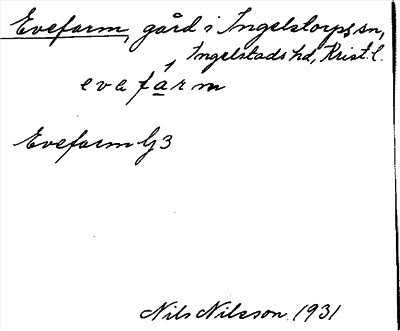 Evefarm, gård i Ingelstorps sn,
Ingelstads hd, Krist. l.
evefárm
Evefarm G3
Nils Nilsson 1931